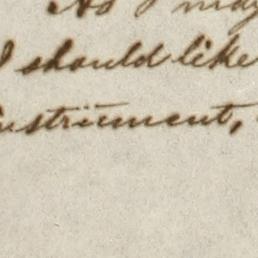 As I may
I should like
instrument,